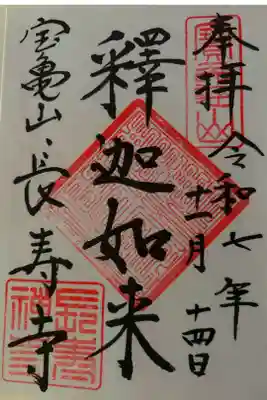 奉拝
令和七年
十一月
十四日
釋迦如来
宝亀山
長寿寺